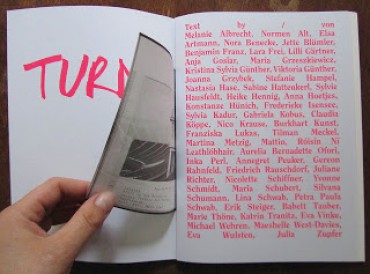 TURN
Text by / von
Melanie Albrecht, Normen Alt, Elsa
Artmann, Nora Benecke, Jette Blümler,
Benjamin Franz, Lara Frei, Lilli Gärtner,
Anja Goslar, Maria Grzeszkiewicz,
Kristina Sylvia Günther, Viktoria Günther,
Joanna Grzybek, Stefanie Hampel,
Nastasia Hase, Sabine Hattenkerl, Sylvie
Hausfeldt, Heike Hennig, Anna Hoetjes,
Konstanze Hünich, Frederieke Isensee,
Sylvia Kadur, Gabriela Kobus, Claudia
Köppe, Nico Krause, Burkhart Kunst,
Franziska Lukas, Tilman Meckel,
Martina Metzig, Mattin, Róisín Ní
Leathlóbhair, Aurelia Bernadette Ofori,
Inka Perl, Annegret Peuker, Gereon
Rahnfeld, Friedrich Rauschdorf, Juliane
Richter, Nicolette Schiffner, Yvonne
Schmidt, Maria Schubert, Silvana
Schumann, Lina Schwab, Petra Paula
Schwab, Erik Steiger, Babett Tauber,
Marie Thöne, Katrin Tranitz, Eva Vinke,
Michael Wehren, Maeshelle West-Davies,
Eva Wulsten, Julia Zupfer